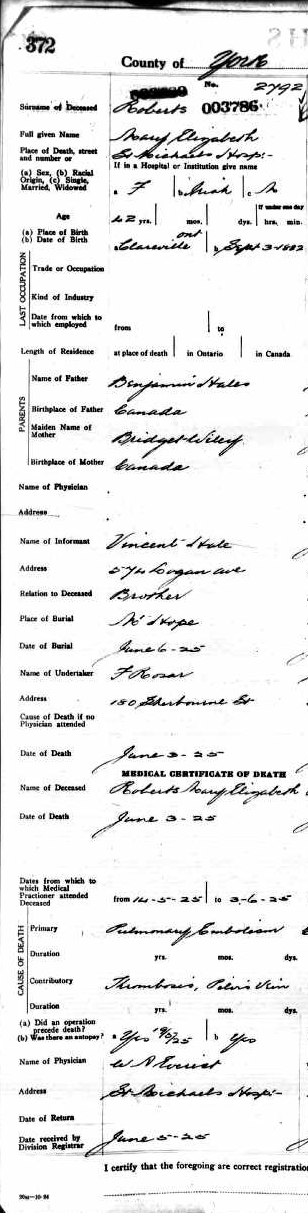 372
County of York
No. 2792
Surname of Deceased Roberts 003786
Full given Name Mary Elizabeth
Place of Death, street and number or St Michaels Hosp:-
If in a Hospital or Institution give name
(a) Sex, (b) Racial Origin, (c) Single, Married, Widowed a F b Irish c M
If under one day
Age 42 yrs. mos. dys. hrs. min.
(a) Place of Birth
(b) Date of Birth a Clareville ont b Sept 3-1882
LAST OCCUPATION
Trade or Occupation
Kind of Industry
Date from which to which employed from to
Length of Residence at place of death in Ontario in Canada
PARENTS
Name of Father Benjamin Hales
Birthplace of Father Canada
Maiden Name of Mother Bridget Wiley
Birthplace of Mother Canada
Name of Physician
Address
Name of Informant Vincent Hale
Address 574 Logan ave
Relation to Deceased Brother
Place of Burial Mt Hope
Date of Burial June 6-25
Name of Undertaker F Rosar
Address 180 Sherbourne St
Cause of Death if no Physician attended
Date of Death June 3-25
MEDICAL CERTIFICATE OF DEATH
Name of Deceased Roberts Mary Elizabeth
Date of Death June 3-25
Dates from which to which Medical Practitioner attended Deceased from 14-5-25 to 3-6-25
CAUSE OF DEATH
Primary Pulmonary Embolism
Duration yrs. mos. dys.
Contributory Thrombosis, Pelvis Vein
Duration yrs. mos. dys.
(a) Did an operation precede death?
(b) Was there an autopsy? a Yes b Yes
Name of Physician W A
Address St Michaels Hosp:-
Date of Return
Date received by Division Registrar June 5-25
I certify that the foregoing are correct registration
20m-10-24